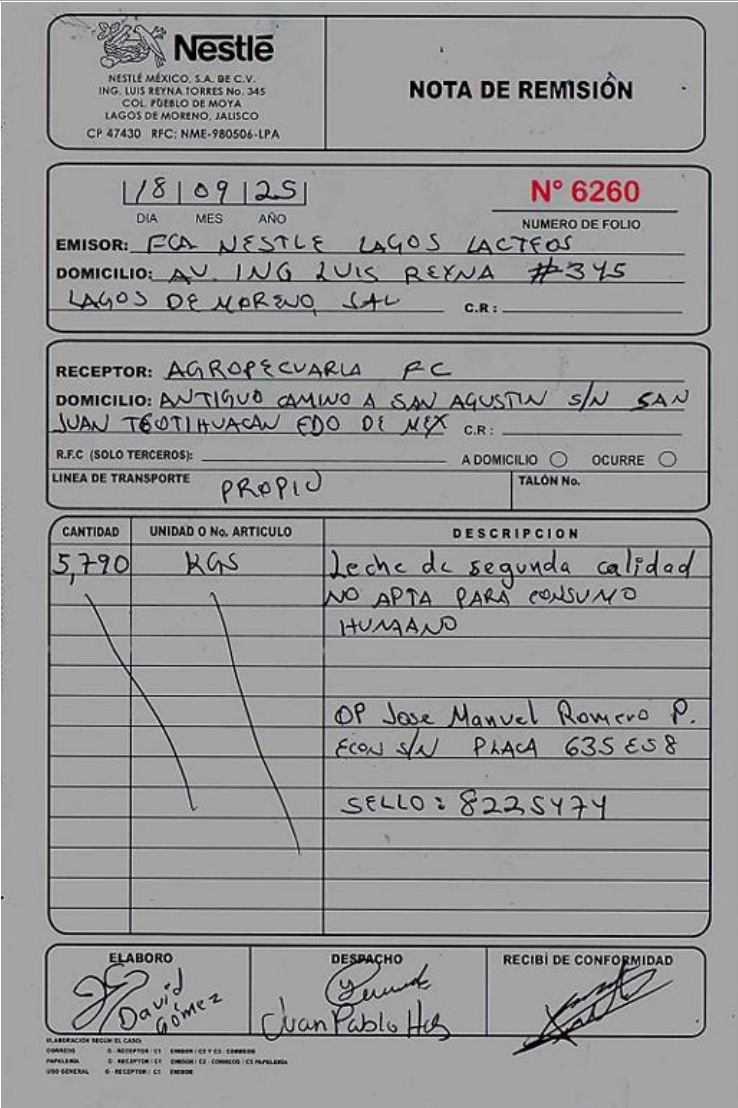 Nestlé
NESTLÉ MÉXICO, S.A. DE C.V.
ING. LUIS REYNA TORRES No. 345
COL. PUEBLO DE MOYA
LAGOS DE MORENO, JALISCO
CP 47430 RFC: NME-980506-LPA
NOTA DE REMISIÓN
18 09 25
DIA MES AÑO
N° 6260
NUMERO DE FOLIO
EMISOR: FCA NESTLE LAGOS LACTEOS
DOMICILIO: AV. ING LUIS REYNA #345
LAGOS DE MORENO, JAL C.R:
RECEPTOR: AGROPECUARIA FC
DOMICILIO: ANTIGUO CAMINO A SAN AGUSTIN S/N SAN
JUAN TEOTIHUACAN EDO DE MEX C.R:
R.F.C (SOLO TERCEROS): A DOMICILIO OCURRE
LINEA DE TRANSPORTE PROPIO TALÓN No.
CANTIDAD UNIDAD O No. ARTICULO DESCRIPCION
5,790 KGS Leche de segunda calidad
NO APTA PARA CONSUMO
HUMANO
OP Jose Manuel Romero P.
ECON S/N PLACA 635ES8
SELLO: 8225474
ELABORO DESPACHO RECIBÍ DE CONFORMIDAD
David Gómez
Juan Pablo
ELABORACIÓN SEGÚN EL CASO:
CORREOS O - RECEPTOR / C1 EMISOR / C2 Y C3 - CORREOS
PAPELERÍA O - RECEPTOR / C1 EMISOR / C2 - CORREOS / C3 PAPELERÍA
USO GENERAL O - RECEPTOR / C1 EMISOR